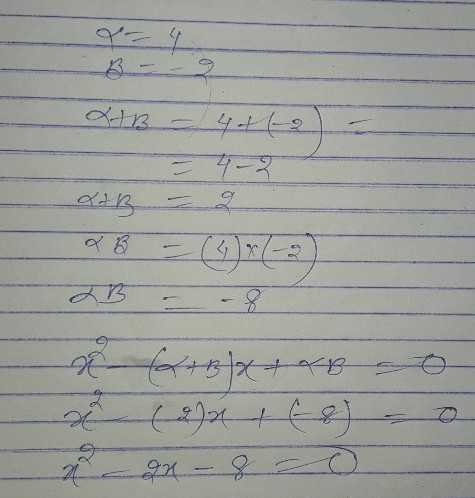 α = 4
β = -2
α+β = 4+(-2) =
= 4-2
α+β = 2
αβ = (4)×(-2)
αβ = -8
x² - (α+β)x + αβ = 0
x² - (2)x + (-8) = 0
x² - 2x - 8 = 0